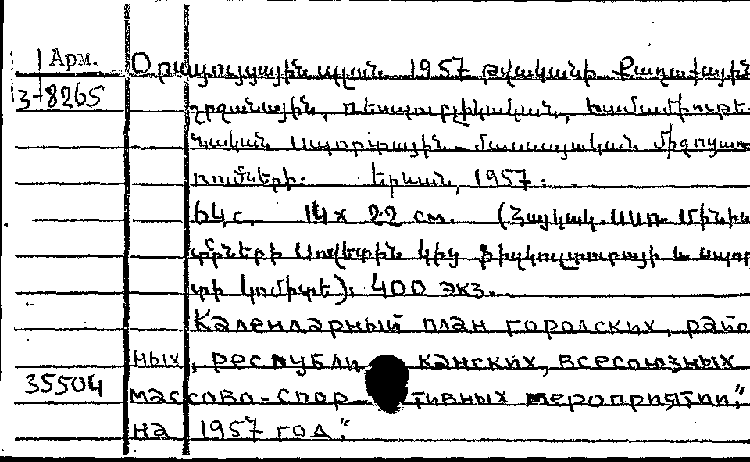 Арм. Օրացուցային պլան 1957 թվականի Քաղաքային
3-8265 շրջանային, ռեսպուբլիկական, համամիութե-
նական սպորտային մասսայական միջոցառ
ումների. Երևան, 1957.
64 с. 14 x 22 см. (Հայկակ. ՍՍՌ Մինիս
տրների Սովետին կից ֆիզկուլտուրայի և սպոր
տի կոմիտե). 400 экз.
Календарный план городских, райо
ных, республиканских, всесоюзных
35504 массово-спортивных мероприятий"
на 1957 год".